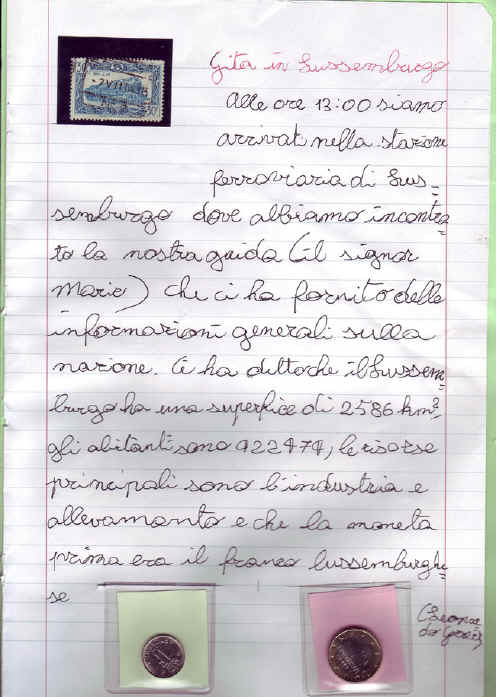 Gita in Lussemburgo
Alle ore 13:00 siamo
arrivat nella stazione
ferroviaria di Lus=
semburgo dove abbiamo incontra=
to la nostra guida (il signor
Mario) che ci ha fornito delle
informazioni generali sulla
nazione. Ci ha detto che il Lussem=
burgo ha una superfice di 2586 km²,
gli abitanti sono 422474, le risorse
principali sono l'industria e
allevamento e che la moneta
prima era il franco lussemburghe=
se
(Leonar
do